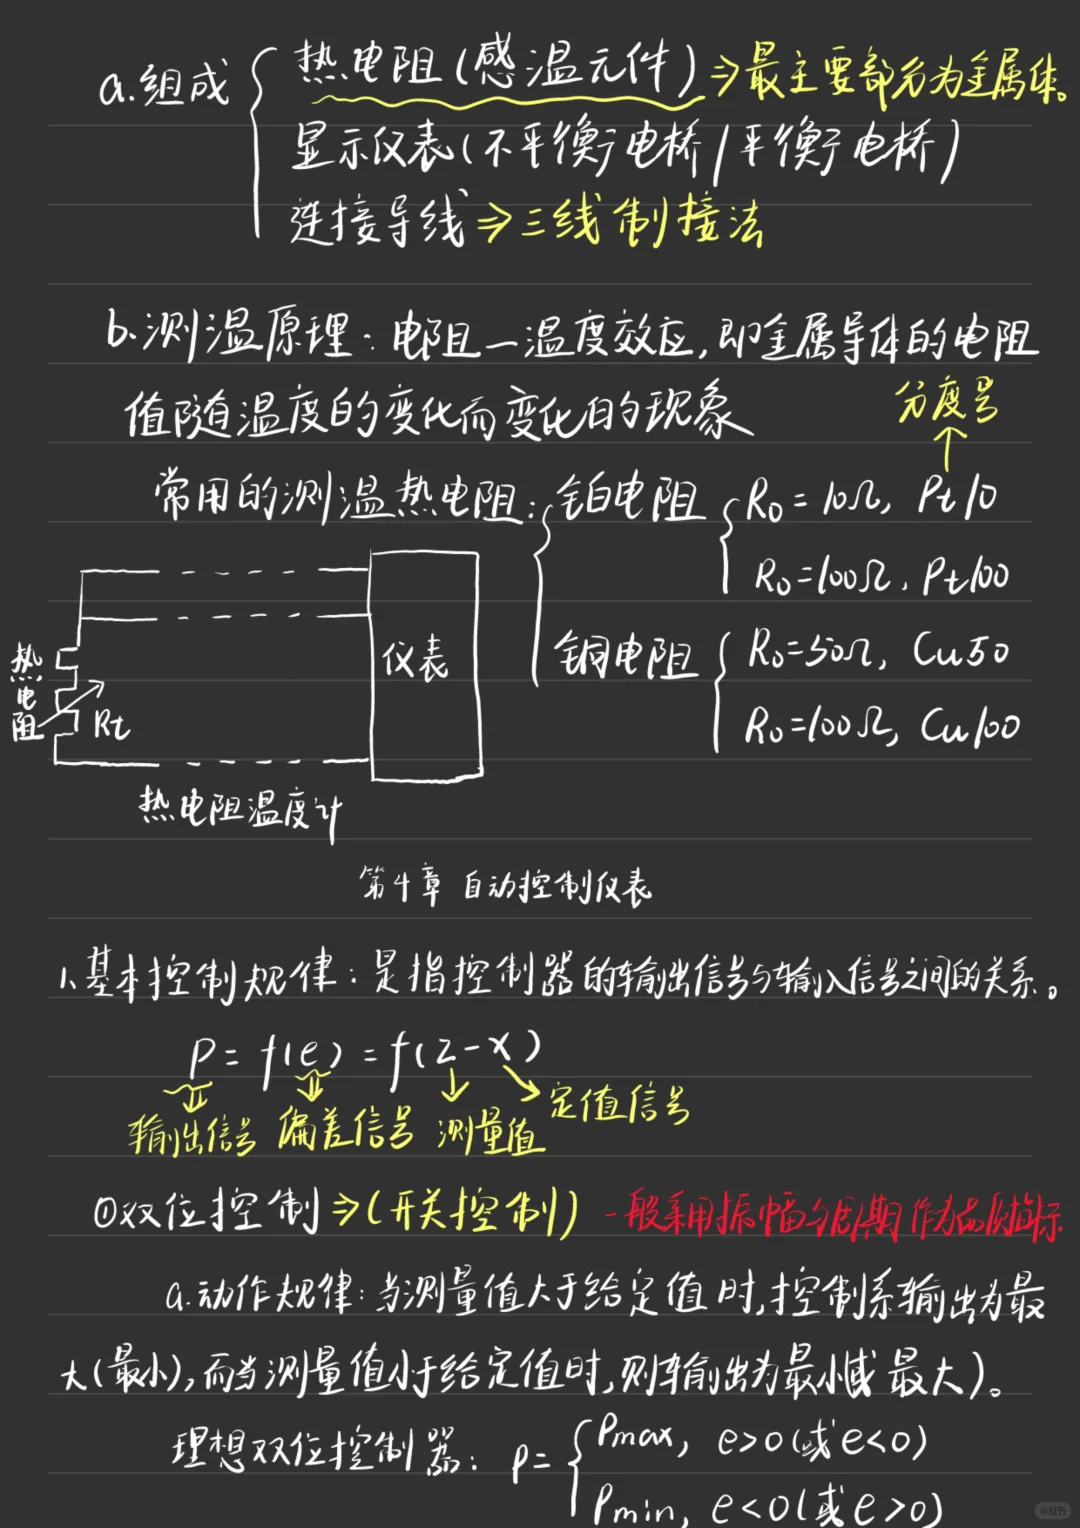 a.组成
热电阻(感温元件)⇒最主要部分为金属体。
显示仪表(不平衡电桥/平衡电桥)
连接导线⇒三线制接法
b.测温原理:电阻—温度效应,即金属导体的电阻
值随温度的变化而变化的现象
分度号
常用的测温热电阻:铂电阻 R₀=10Ω, Pt10
R₀=100Ω, Pt100
铜电阻 R₀=50Ω, Cu50
R₀=100Ω, Cu100
热电阻 Rt
仪表
热电阻温度计
第4章 自动控制仪表
1.基本控制规律:是指控制器的输出信号与输入信号之间的关系。
P=f(e)=f(z-x)
输出信号 偏差信号 测量值 定值信号
①双位控制⇒(开关控制) 一般采用振幅与周期作为品质指标
a.动作规律:当测量值大于给定值时,控制系输出为最
大(最小),而当测量值小于给定值时,则输出为最小(或最大)。
理想双位控制器: P= Pmax, e>0(或e<0)
Pmin, e<0(或e>0)
小红书